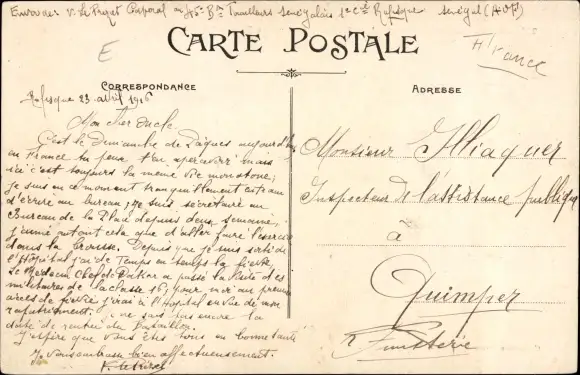 Envoi de: V. Le Caporal au Bn Tirailleurs Sénégalais 1e Cie Rufisque Sénégal (AOF)
E
CARTE POSTALE
France
CORRESPONDANCE
ADRESSE
Rufisque 23 avril 1916
Mon cher Oncle
C'est le Dimanche de Pâques aujourd'hui
en France tu peux t'en apercevoir mais
ici c'est toujours la même vie monotone;
Je suis en ce moment tranquillement
d'écrire au bureau; je suis secrétaire au
Bureau de la Place depuis deux semaines,
j'aime autant cela que d'aller faire l'exercice
dans la brousse. Depuis que je suis sorti de
l'Hôpital j'ai de temps en temps la fièvre
Le Médecin Chef de Dakar a passé la visite des
militaires de la classe 16, pour moi au premier
accès de fièvre j'irai à l'Hopital en vue de mon
rapatriement. ne sais pas encore la
date de rentrée du Bataillon.
J'espère que vous êtes tous en bonne santé
Je vous embrasse bien affectueusement.
Monsieur Illiaquer
Inspecteur de l'assistance publique
à
Quimper
Finistère